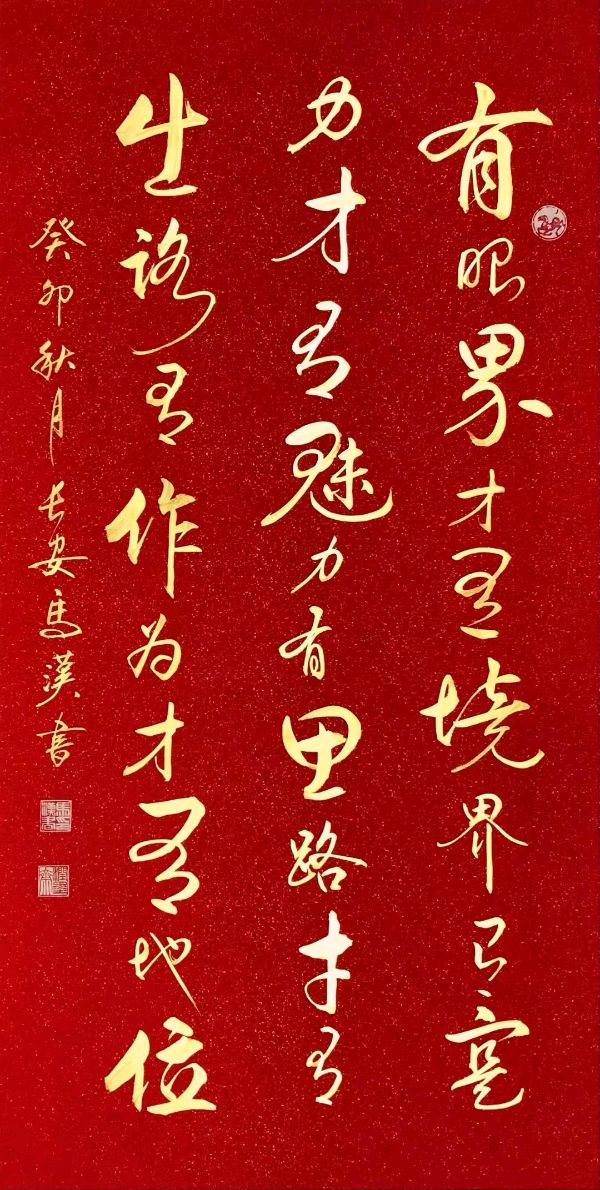 有眼界才有境界有寔
力才有魅力有思路才有
出路有作为才有地位
癸卯秋月长安馬漢书